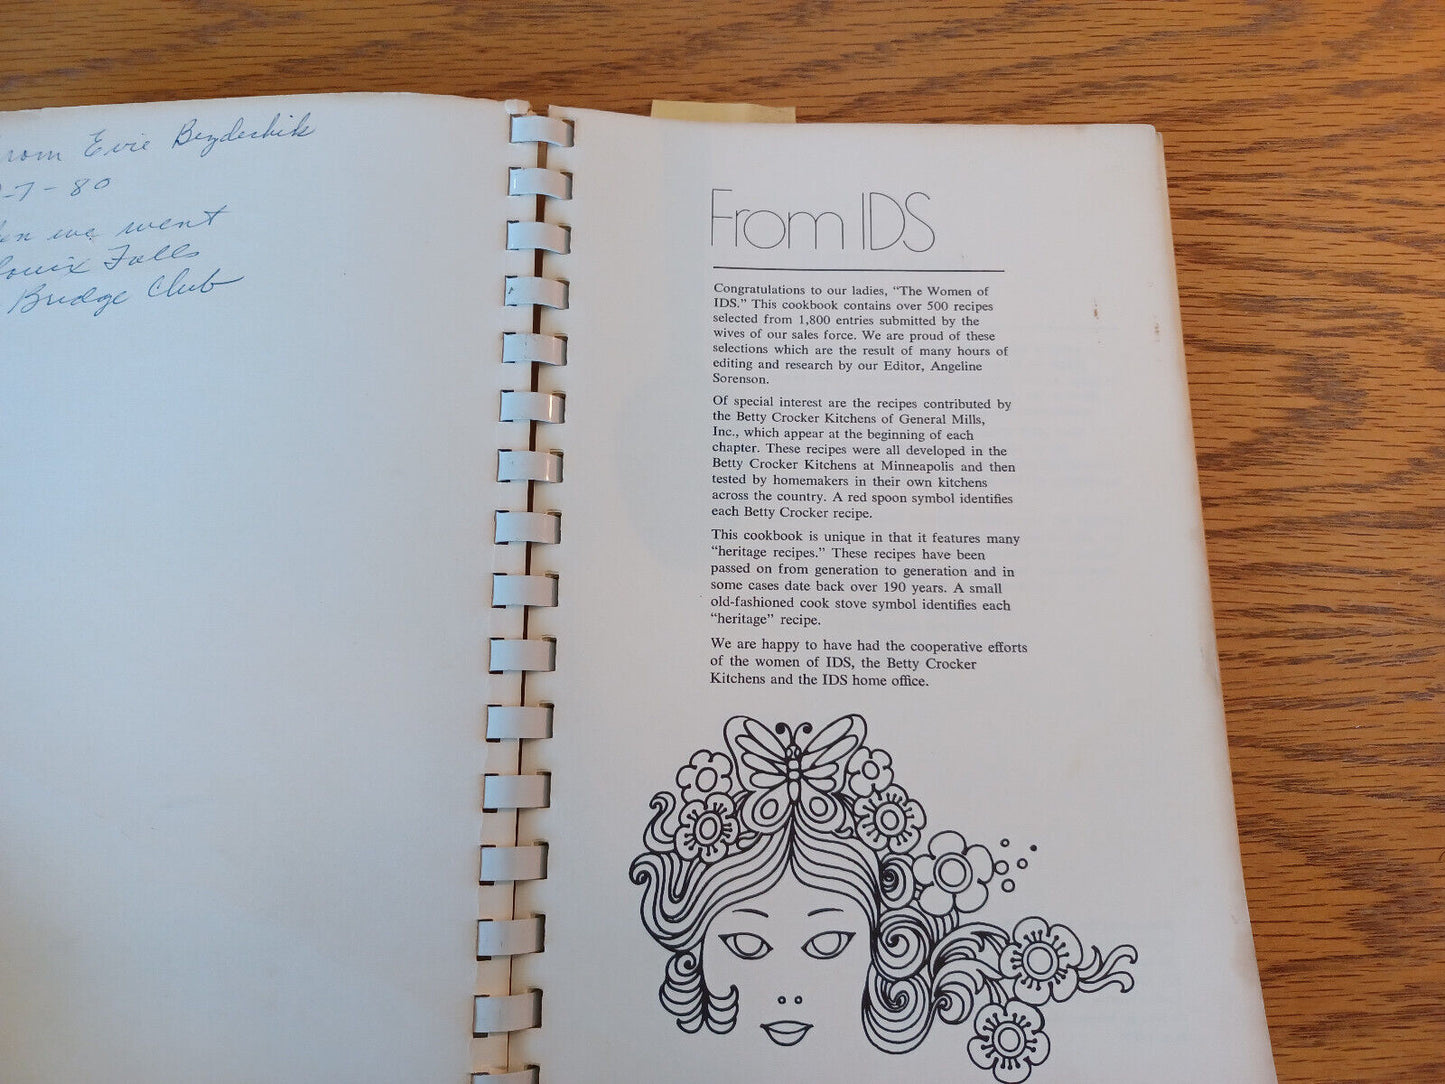 From Evie Bezdechik
-7-80
we went
Falls
Bridge Club
From IDS
Congratulations to our ladies, "The Women of
IDS." This cookbook contains over 500 recipes
selected from 1,800 entries submitted by the
wives of our sales force. We are proud of these
selections which are the result of many hours of
editing and research by our Editor, Angeline
Sorenson.
Of special interest are the recipes contributed by
the Betty Crocker Kitchens of General Mills,
Inc., which appear at the beginning of each
chapter. These recipes were all developed in the
Betty Crocker Kitchens at Minneapolis and then
tested by homemakers in their own kitchens
across the country. A red spoon symbol identifies
each Betty Crocker recipe.
This cookbook is unique in that it features many
"heritage recipes." These recipes have been
passed on from generation to generation and in
some cases date back over 190 years. A small
old-fashioned cook stove symbol identifies each
"heritage" recipe.
We are happy to have had the cooperative efforts
of the women of IDS, the Betty Crocker
Kitchens and the IDS home office.